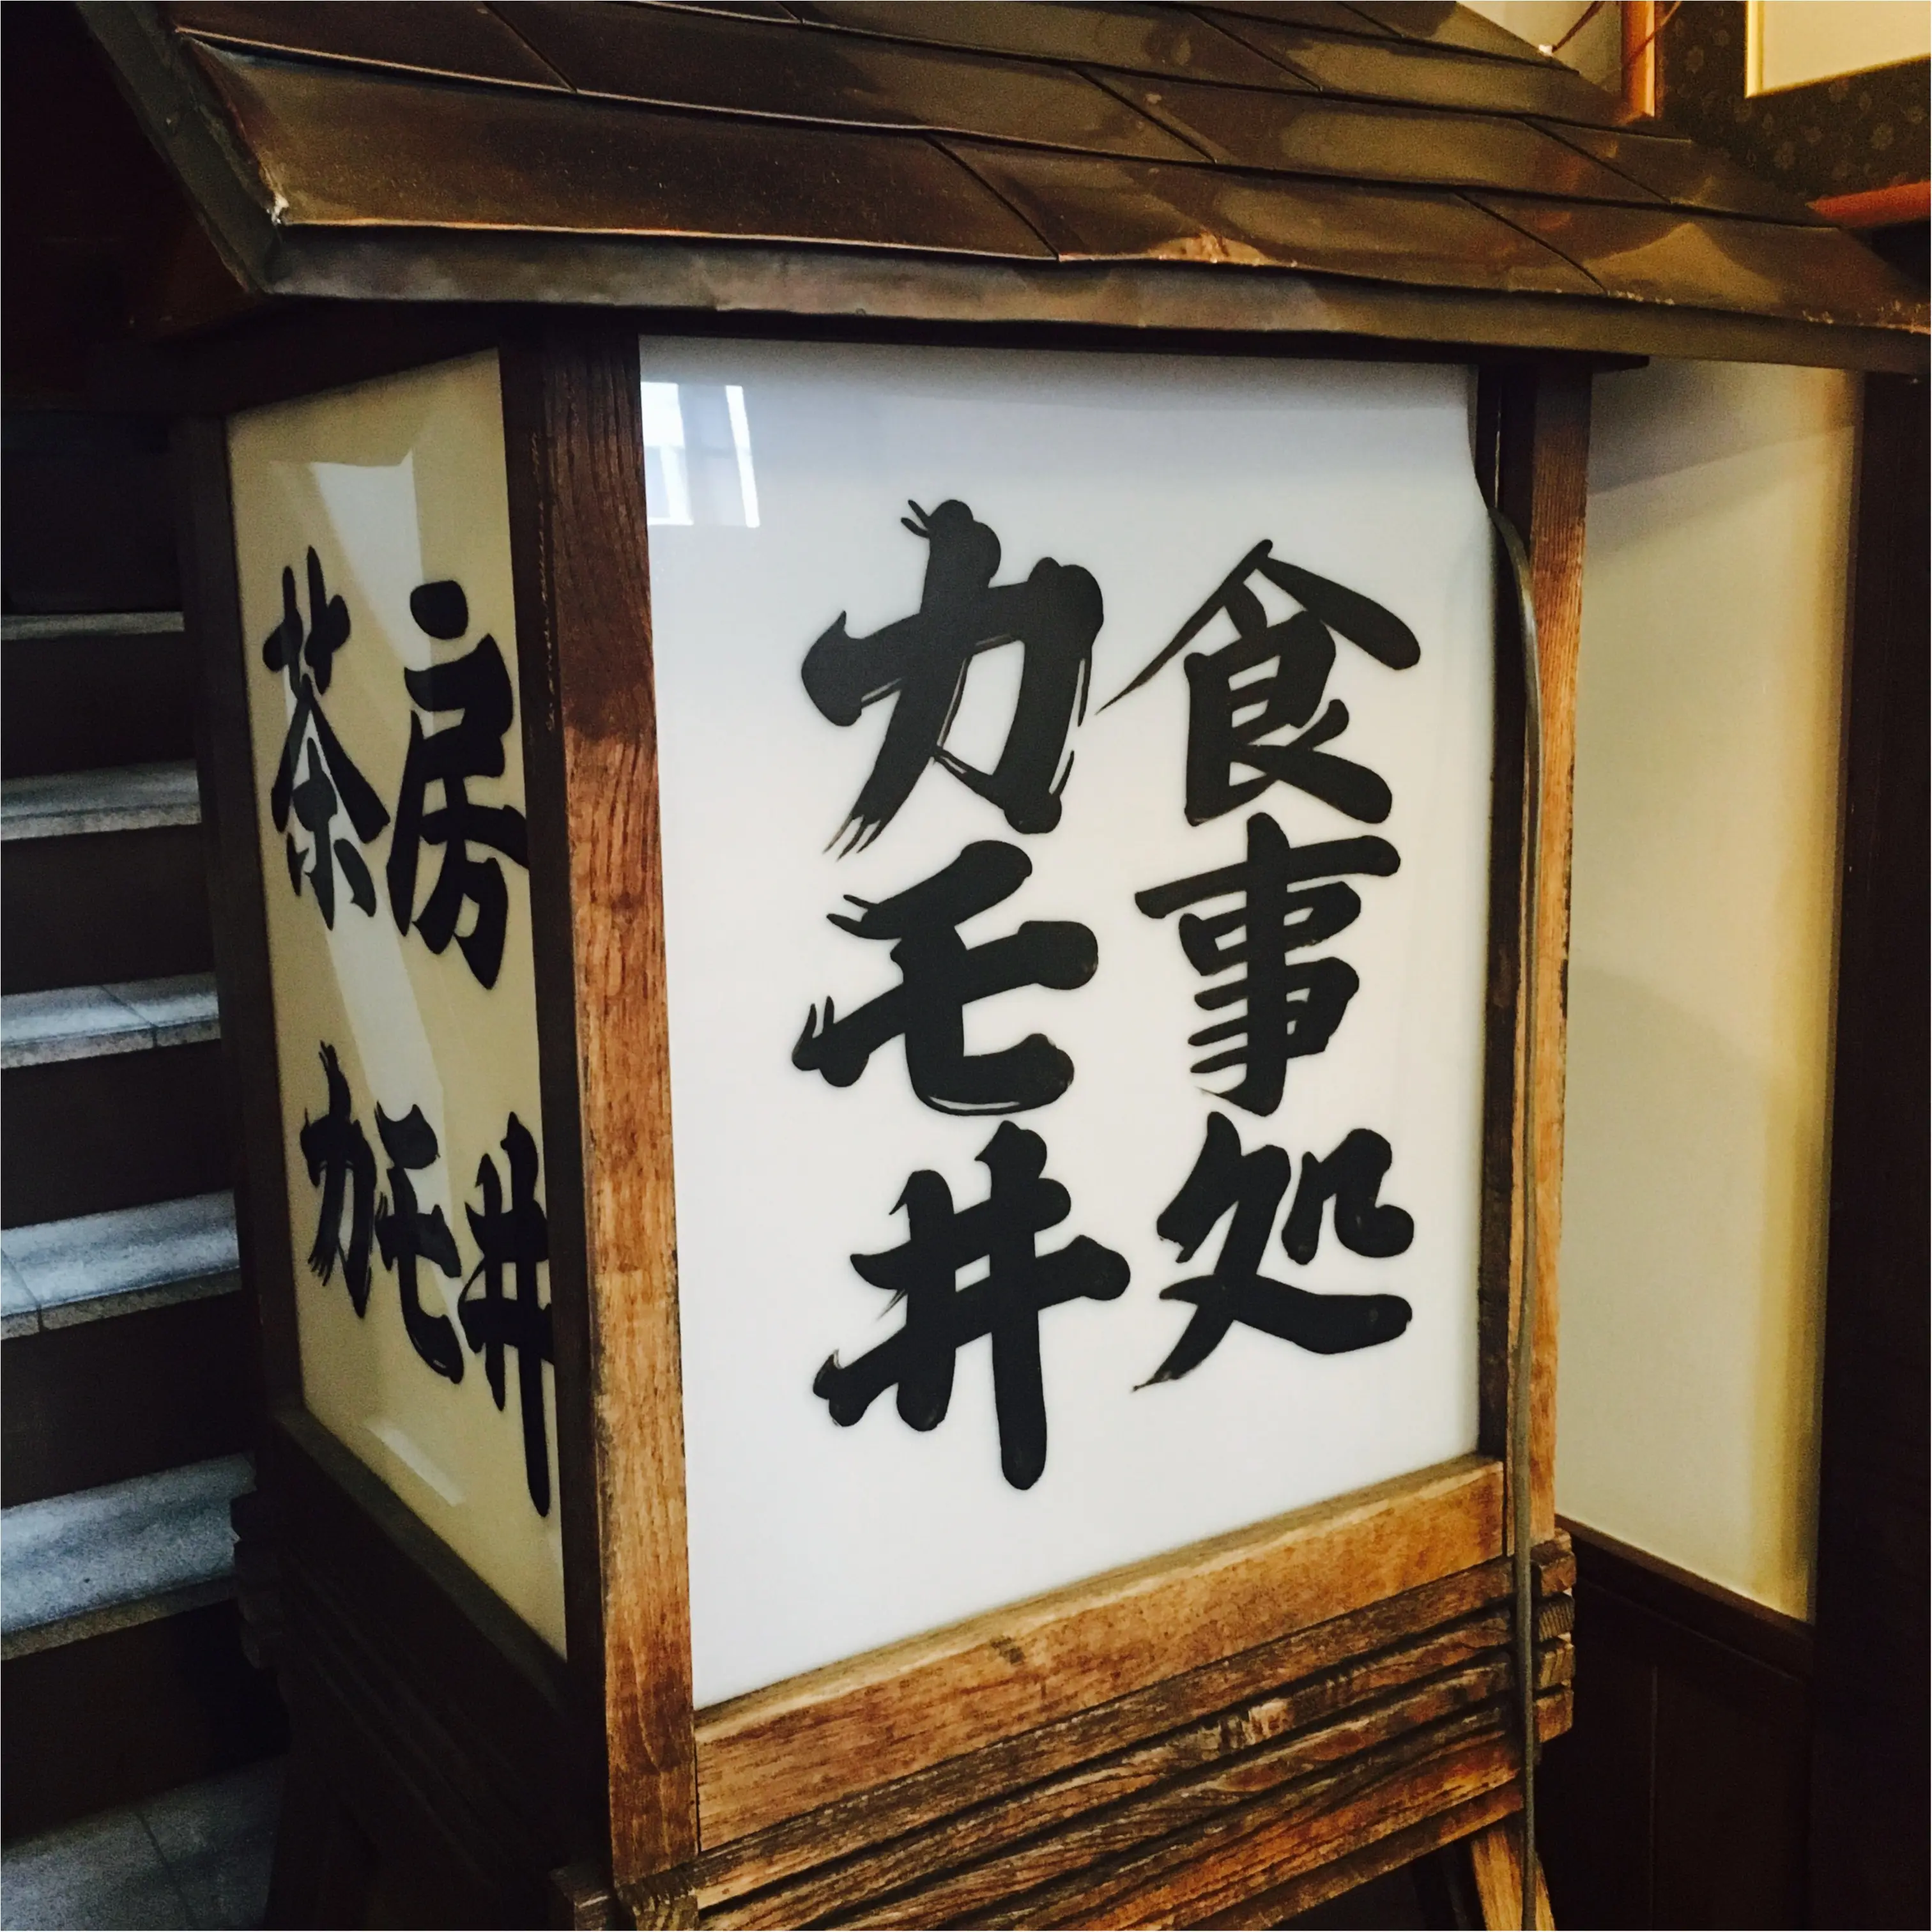 食事処
カモ井
茶房
カモ井